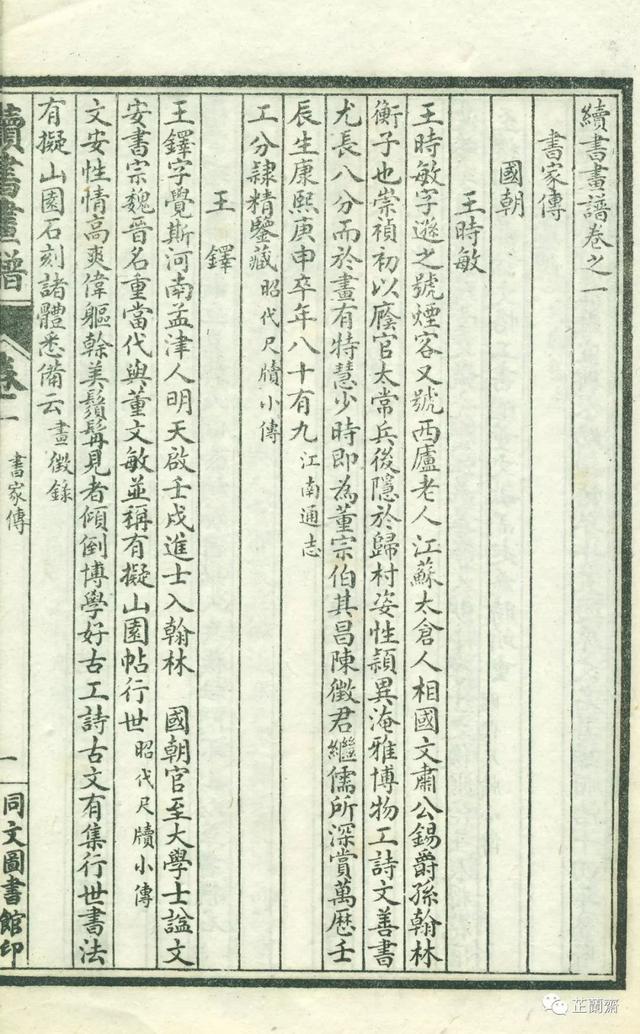 續書畫譜卷之一
書家傳
國朝
王時敏
王時敏字遜之號煙客又號西廬老人江蘇太倉人相國文肅公錫爵孫翰林
衡子也崇禎初以廕官太常兵後隱於歸村姿性穎異淹雅博物工詩文善書
尤長八分而於畫有特慧少時即為董宗伯其昌陳徵君繼儒所深賞萬歷壬
辰生康熙庚申卒年八十有九江南通志
工分隷精鑒藏昭代尺牘小傳
王鐸
王鐸字覺斯河南孟津人明天啟壬戌進士入翰林 國朝官至大學士諡文
安書宗魏晉名重當代與董文敏並稱有擬山園帖行世昭代尺牘小傳
文安性情高爽偉軀榦美鬚髯見者傾倒博學好古工詩古文有集行世書法
有擬山園石刻諸體悉備云畫徵錄
續書畫譜
卷一
書家傳
一
同文圖書館印
芷蘭齋